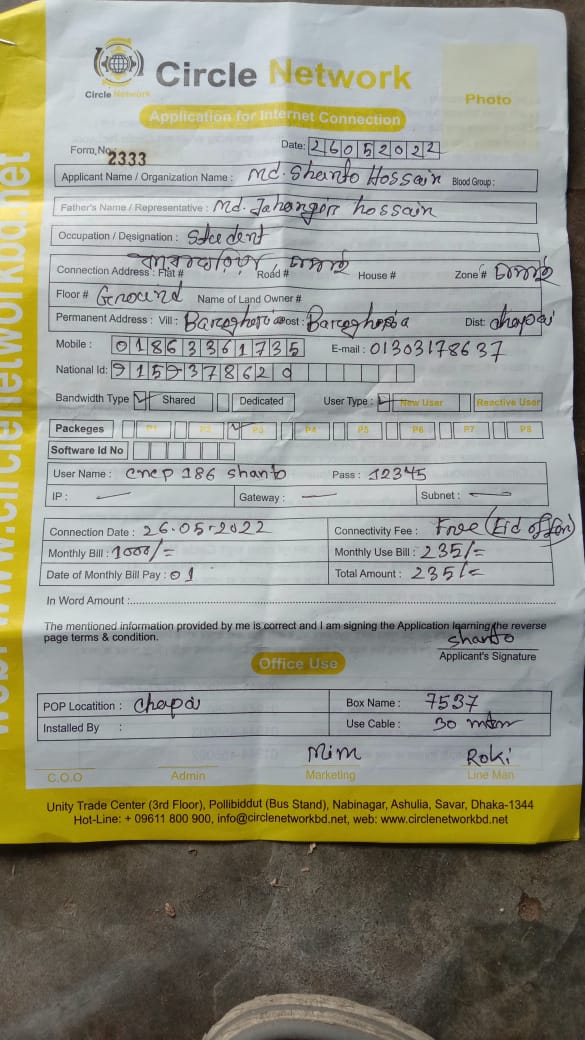 Circle Network
Circle Network
Photo
Application for Internet Connection
Form, No: 2333
Date: 26052022
Applicant Name / Organization Name : Md. Shanto Hossain Blood Group :
Father's Name / Representative : Md. Jahangir hossain
Occupation / Designation : Student
Connection Address : Flat # Road # House # Zone #
Floor # Ground Name of Land Owner #
Permanent Address : Vill : Post : Dist: chapai
Mobile : 01863361735 E-mail : 01303178637
National Id:
Bandwidth Type Shared Dedicated User Type : New User Reactive User
Packeges P1 P2 P3 P4 P5 P6 P7 P8
Software Id No
User Name : cncp 186 shanto Pass : 12345
IP : — Gateway : — Subnet : —
Connection Date : 26.05-2022 Connectivity Fee : Free (Eid offer)
Monthly Bill : 1000/= Monthly Use Bill : 235/=
Date of Monthly Bill Pay : 01 Total Amount : 235/=
In Word Amount :
The mentioned information provided by me is correct and I am signing the Application learning the reverse
page terms & condition.
shanto
Applicant's Signature
Office Use
POP Locatition : Chapai Box Name : 7537
Installed By : Use Cable : 30
Mim Roki
C.O.O Admin Marketing Line Man
Unity Trade Center (3rd Floor), Pollibiddut (Bus Stand), Nabinagar, Ashulia, Savar, Dhaka-1344
Hot-Line: + 09611 800 900, info@circlenetworkbd.net, web: www.circlenetworkbd.net